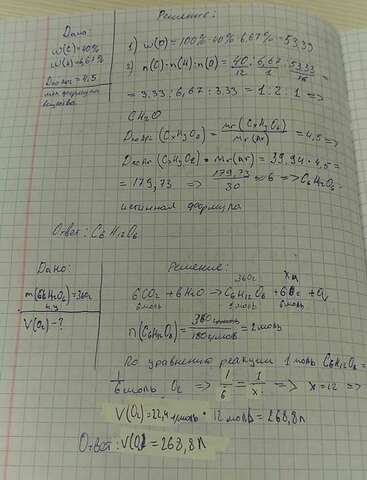 Решение:
Дано:
w(C)=40%
w(H)=6,67%
D по Ar = 4,5
мол. формула
вещества
1) w(O) = 100% - 40% - 6,67% = 53,33
2) n(C):n(H):n(O) = 40/12 : 6,67/1 : 53,33/16 =
= 3,33 : 6,67 : 3,33 = 1:2:1 =>
CH2O
D по Ar (CxHyOz) = Mr(CxHyOz)/Mr(Ar) = 4,5 =>
D по Ar (CxHyOz) • Mr(Ar) = 39,94 • 4,5 =
= 179,73 => 179,73/30 = 6 => C6H12O6 -
истинная формула
Ответ: C6H12O6
Дано:
m(C6H12O6)=360г
н.у.
V(O2) - ?
Решение:
360г xм
6CO2 + 6H2O → C6H12O6 + 6O2 + Q
6моль 1моль 6моль
n(C6H12O6) = 360/180 г/моль = 2моль
По уравнению реакции 1 моль C6H12O6 =
6 моль O2 => 1/6 = 2/x => x=12 =>
V(O2) = 22,4 л/моль • 12 моль = 268,8л
Ответ: V(O2) = 268,8л